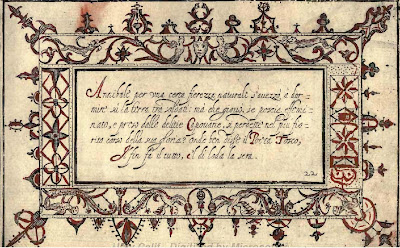 Anibale per vna certa fierezza naturale s'auezzò à dor=
mire sù la terra trà soldati: mà che giouò, se poscia effemi=
nato, e preso dalle delitie Capouane, si perdette nel più fio=
rito corso della sua gloria? onde ben disse il Poeta Tosco,
fin fa il tutto, el dì loda la sera.
22.
Calif - Digitized by Microsoft